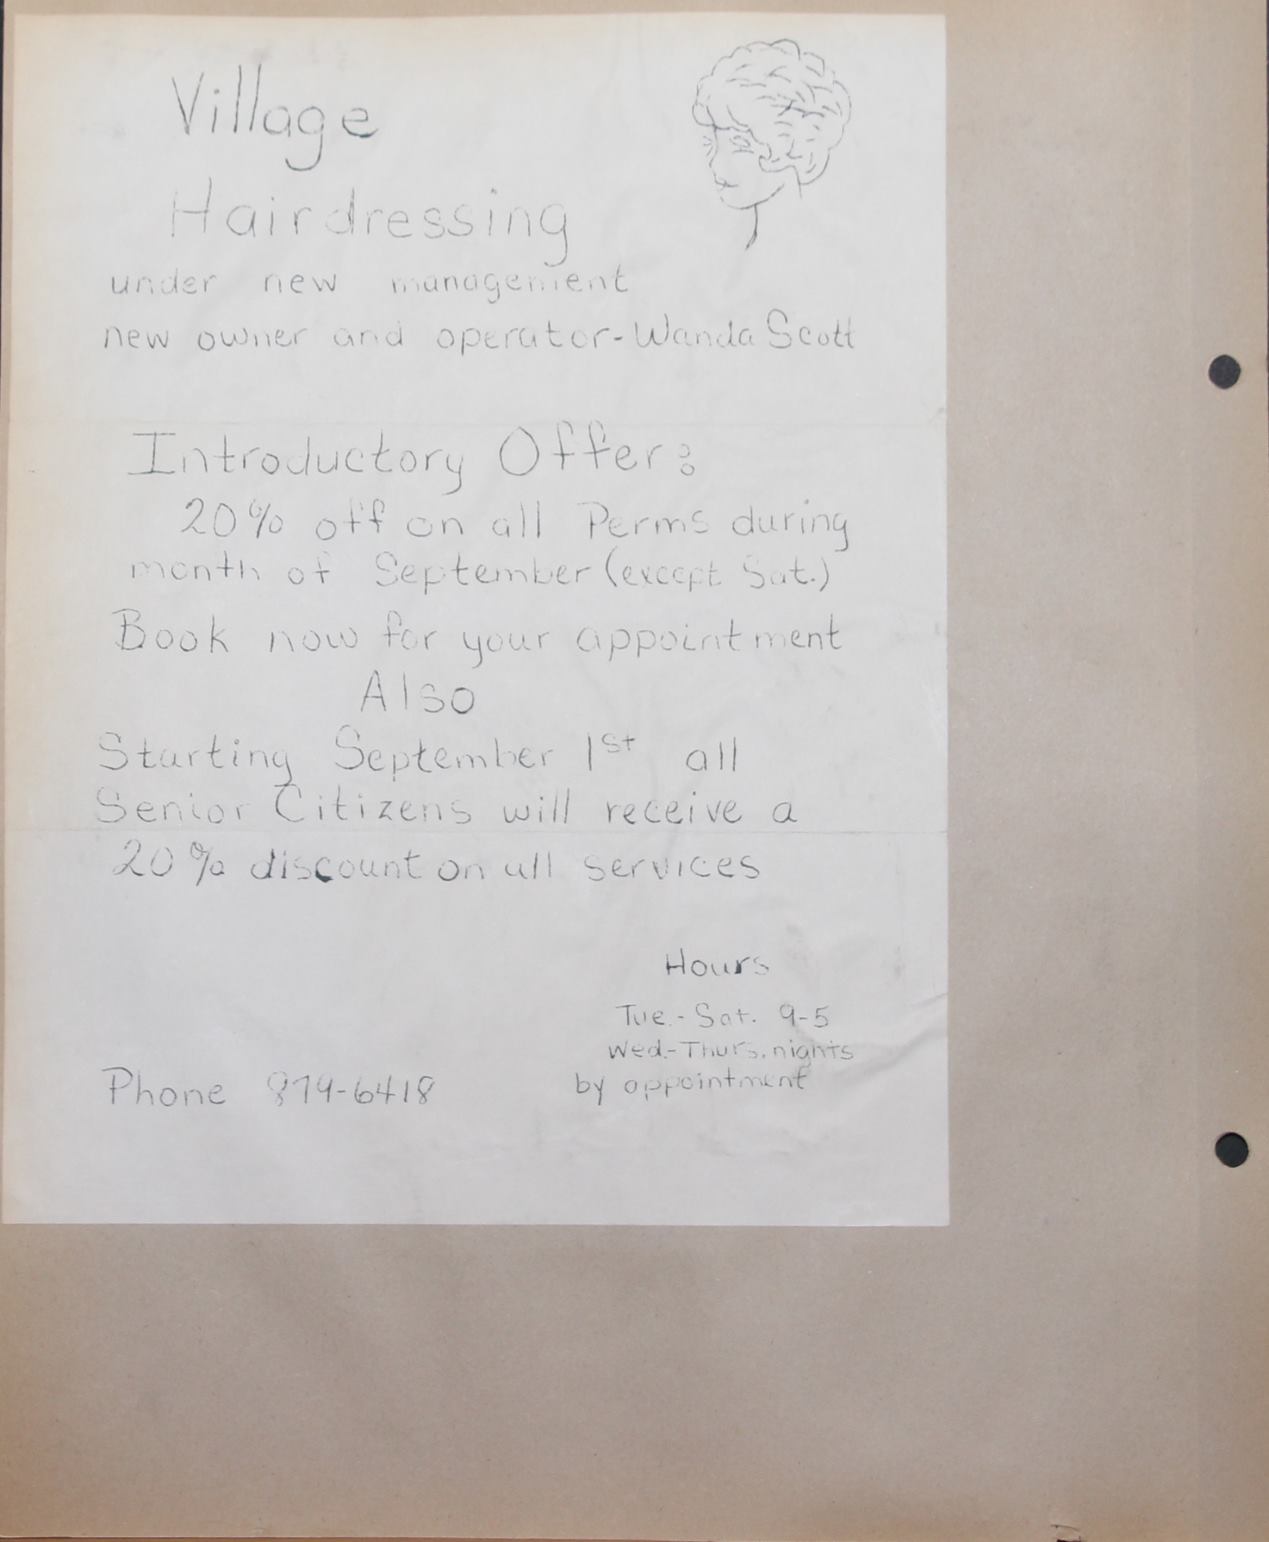 Village
Hairdressing
under new management
new owner and operator-Wanda Scott
Introductory Offer:
20% off on all Perms during
month of September (except Sat.)
Book now for your appointment
Also
Starting September 1st all
Senior Citizens will receive a
20% discount on all services
Hours
Tue.-Sat. 9-5
Wed.-Thurs. nights
by appointment
Phone 879-6418